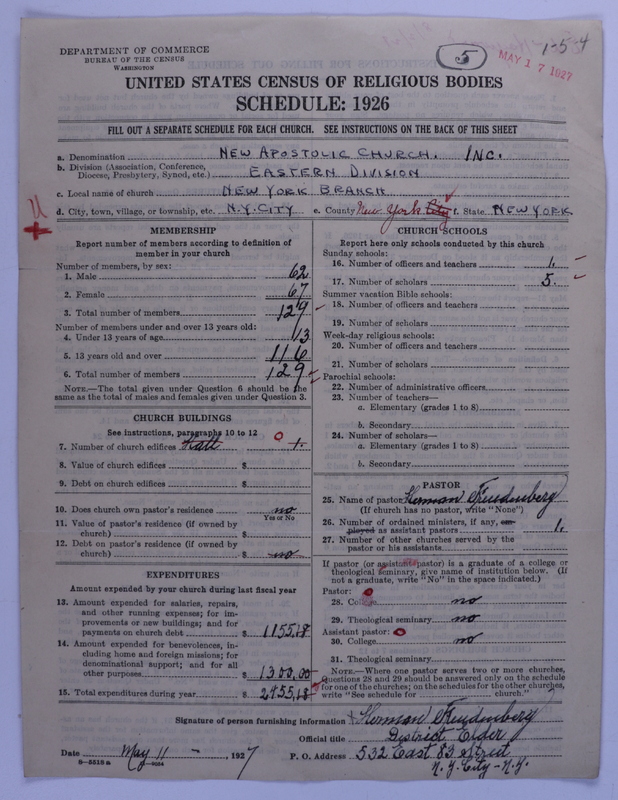 5
1-5-4
MAY 17 1927
DEPARTMENT OF COMMERCE
BUREAU OF THE CENSUS
WASHINGTON
UNITED STATES CENSUS OF RELIGIOUS BODIES
SCHEDULE: 1926
FILL OUT A SEPARATE SCHEDULE FOR EACH CHURCH. SEE INSTRUCTIONS ON THE BACK OF THIS SHEET
a. Denomination NEW APOSTOLIC CHURCH. INC.
b. Division (Association, Conference,
Diocese, Presbytery, Synod, etc.) EASTERN DIVISION
c. Local name of church NEW YORK BRANCH
d. City, town, village, or township, etc. N.Y. CITY e. County New York City f. State NEW YORK
MEMBERSHIP
Report number of members according to definition of
member in your church
Number of members, by sex:
1. Male 62
2. Female 67
3. Total number of members 129
Number of members under and over 13 years old:
4. Under 13 years of age 13
5. 13 years old and over 116
6. Total number of members 129
NOTE.—The total given under Question 6 should be the
same as the total of males and females given under Question 3.
CHURCH BUILDINGS
See instructions, paragraphs 10 to 12
7. Number of church edifices Hall 0 1.
8. Value of church edifices $
9. Debt on church edifices $
10. Does church own pastor's residence no
Yes or No
11. Value of pastor's residence (if owned by
church) $
12. Debt on pastor's residence (if owned by
church) $ no
EXPENDITURES
Amount expended by your church during last fiscal year
13. Amount expended for salaries, repairs,
and other running expenses; for im-
provements or new buildings; and for
payments on church debt $ 1155,18
14. Amount expended for benevolences, in-
cluding home and foreign missions; for
denominational support; and for all
other purposes $ 1300,00
15. Total expenditures during year $ 2455,18
CHURCH SCHOOLS
Report here only schools conducted by this church
Sunday schools:
16. Number of officers and teachers 1.
17. Number of scholars 5.
Summer vacation Bible schools:
18. Number of officers and teachers
19. Number of scholars
Week-day religious schools:
20. Number of officers and teachers
21. Number of scholars
Parochial schools:
22. Number of administrative officers
23. Number of teachers—
a. Elementary (grades 1 to 8)
b. Secondary
24. Number of scholars—
a. Elementary (grades 1 to 8)
b. Secondary
PASTOR
25. Name of pastor Herman Freudenberg
(If church has no pastor, write "None")
26. Number of ordained ministers, if any, em-
ployed as assistant pastors 1.
27. Number of other churches served by the
pastor or his assistants
If pastor (or assistant pastor) is a graduate of a college or
theological seminary, give name of institution below. (If
not a graduate, write "No" in the space indicated.)
Pastor:
28. College no
29. Theological seminary no
Assistant pastor:
30. College no
31. Theological seminary
NOTE.—Where one pastor serves two or more churches,
Questions 28 and 29 should be answered only on the schedule
for one of the churches; on the schedules for the other churches,
write "See schedule for church."
Signature of person furnishing information Herman Freudenberg
Official title District Elder
Date May 11 - 1927 P. O. Address 532 East 83 Street
8-5518a N.Y. City - N.Y.